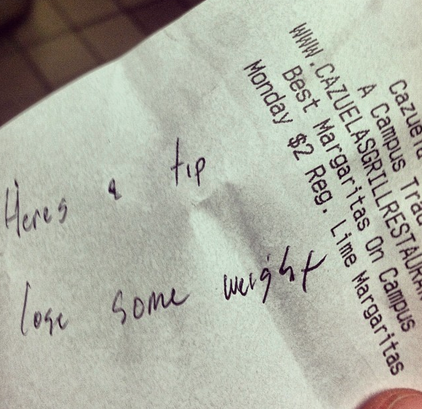 Heres a tip
lose some weight
Cazuela
A Campus Trad
WWW.CAZUELASGRILLRESTAURAN
Best Margaritas On Campus
Monday $2 Reg. Lime Margaritas